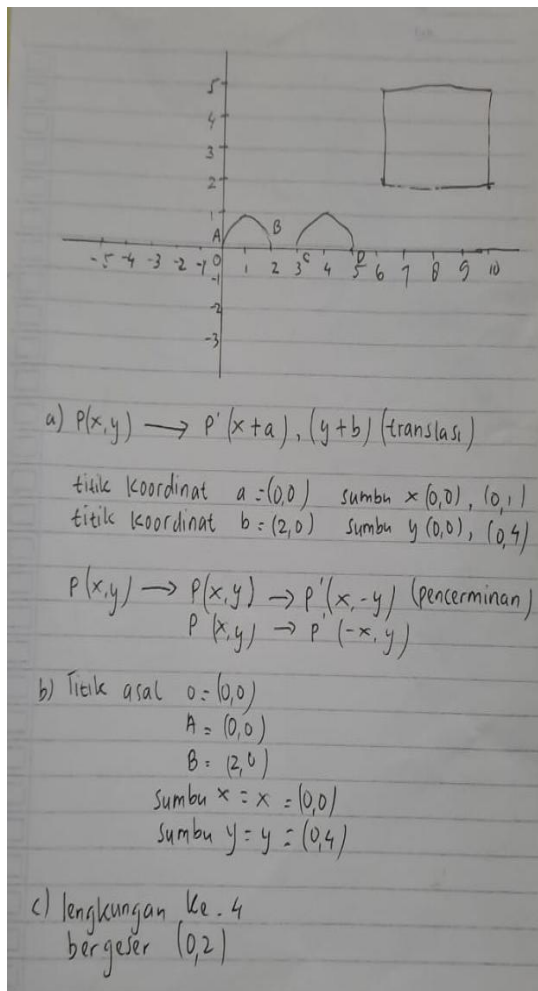 5
4
3
2
1
A B C D
-5 -4 -3 -2 -1 0 1 2 3 4 5 6 7 8 9 10
-1
-2
-3
a) P(x,y) → P'(x+a), (y+b) (translasi)
titik koordinat a = (0,0) sumbu x (0,0), (0,1)
titik koordinat b = (2,0) sumbu y (0,0), (0,4)
P(x,y) → P(x,y) → P'(x,-y) (pencerminan)
P(x,y) → P'(-x,y)
b) Titik asal 0 = (0,0)
A = (0,0)
B = (2,0)
Sumbu x = x = (0,0)
Sumbu y = y = (0,4)
c) lengkungan ke. 4
bergeser (0,2)